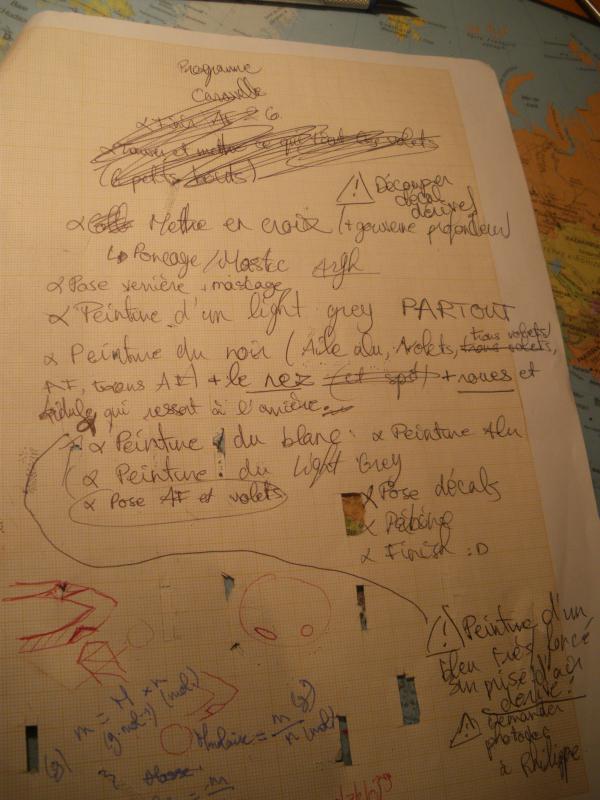 Programme
Caravelle
α Finir AF 2 6.
α Trouver et mettre ce qui tient les volets
(2 petits bouts)
⚠ Découper
décal
dérive
α Mettre en croix (+ gouverne profondeur)
↳ Ponçage/Mastic Argh
α Pose verrière + mastage
α Peinture d'un light grey PARTOUT
α Peinture du noir (Aile alu, volets, trous volets,
AF, trous AF) + le nez (et spot) + roues et
bidule qui ressort à l'arrière.
α Peinture du blanc: α Peinture Alu
α Peinture: du Light Grey
α Pose AF et volets
α Pose décals
α Patine
α Finish :D
⚠ Peinture d'un
bleu très foncé
sur prise d'air
dérive!
⚠ Demander
photos
à Philippe
m = M × n
(g) (g.mol⁻¹) (mol)
Mmolaire = m (g)
n (mol)
m